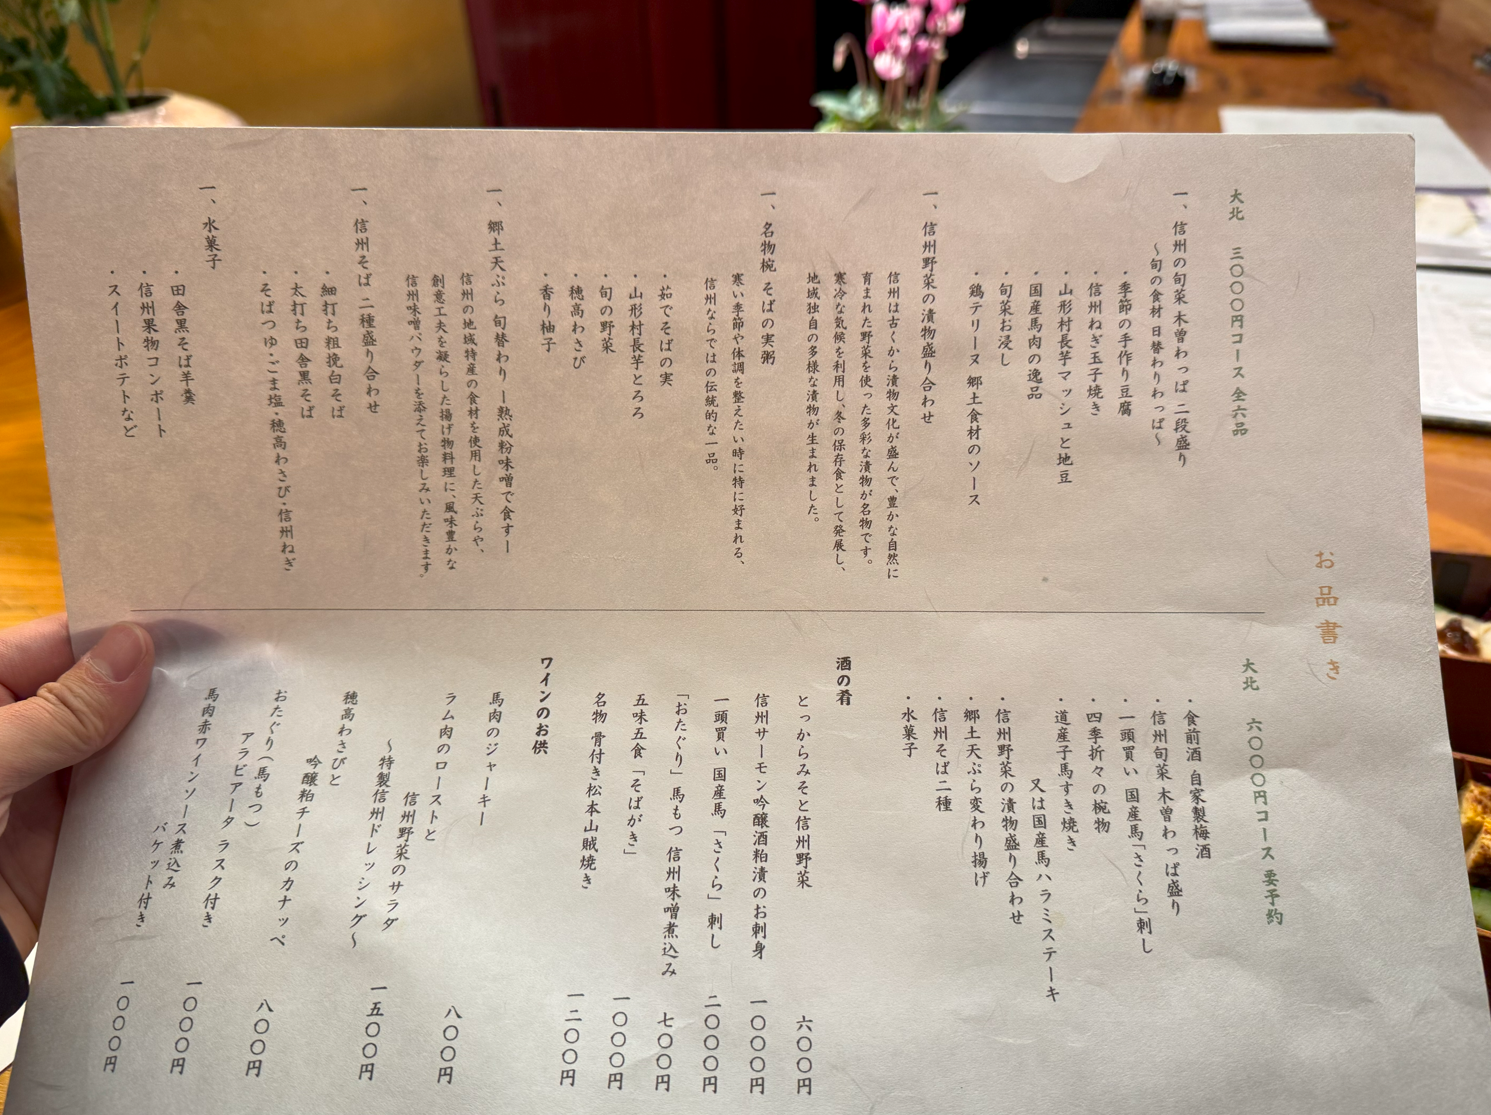 お品書き
大北 三〇〇〇円コース 全六品
一、信州の旬菜 木曽わっぱ 二段盛り
〜旬の食材 日替わりわっぱ〜
・季節の手作り豆腐
・信州ねぎ玉子焼き
・山形村長芋マッシュと地豆
・国産馬肉の逸品
・旬菜お浸し
・鶏テリーヌ 郷土食材のソース
一、信州野菜の漬物盛り合わせ
信州は古くから漬物文化が盛んで、豊かな自然に
育まれた野菜を使った多彩な漬物が名物です。
寒冷な気候を利用し、冬の保存食として発展し、
地域独自の多様な漬物が生まれました。
一、名物椀 そばの実粥
寒い季節や体調を整えたい時に特に好まれる、
信州ならではの伝統的な一品。
・茹でそばの実
・山形村長芋とろろ
・旬の野菜
・穂高わさび
・香り柚子
一、郷土天ぷら 旬替わり ー熟成粉味噌で食すー
信州の地域特産の食材を使用した天ぷらや、
創意工夫を凝らした揚げ物料理に、風味豊かな
信州味噌パウダーを添えてお楽しみいただきます。
一、信州そば 二種盛り合わせ
・細打ち粗挽白そば
・太打ち田舎黒そば
・そばつゆごま塩・穂高わさび・信州ねぎ
一、水菓子
・田舎黒そば羊羹
・信州果物コンポート
・スイートポテトなど
大北 六〇〇〇円コース 要予約
・食前酒 自家製梅酒
・信州旬菜 木曽わっぱ盛り
・一頭買い 国産馬「さくら」刺し
・四季折々の椀物
・道産子馬すき焼き
又は国産馬ハラミステーキ
・信州野菜の漬物盛り合わせ
・郷土天ぷら変わり揚げ
・信州そば二種
・水菓子
酒の肴
とっからみそと信州野菜 六〇〇円
信州サーモン吟醸酒粕漬のお刺身 一〇〇〇円
一頭買い 国産馬「さくら」刺し 二〇〇〇円
「おたぐり」馬もつ 信州味噌煮込み 七〇〇円
五味五食「そばがき」 一〇〇〇円
名物 骨付き松本山賊焼き 一二〇〇円
ワインのお供
馬肉のジャーキー 八〇〇円
ラム肉のローストと
信州野菜のサラダ
〜特製信州ドレッシング〜 一五〇〇円
穂高わさびと
吟醸粕チーズのカナッペ 八〇〇円
おたぐり（馬もつ）
アラビアータ ラスク付き 一〇〇〇円
馬肉赤ワインソース煮込み
バケット付き 一〇〇〇円